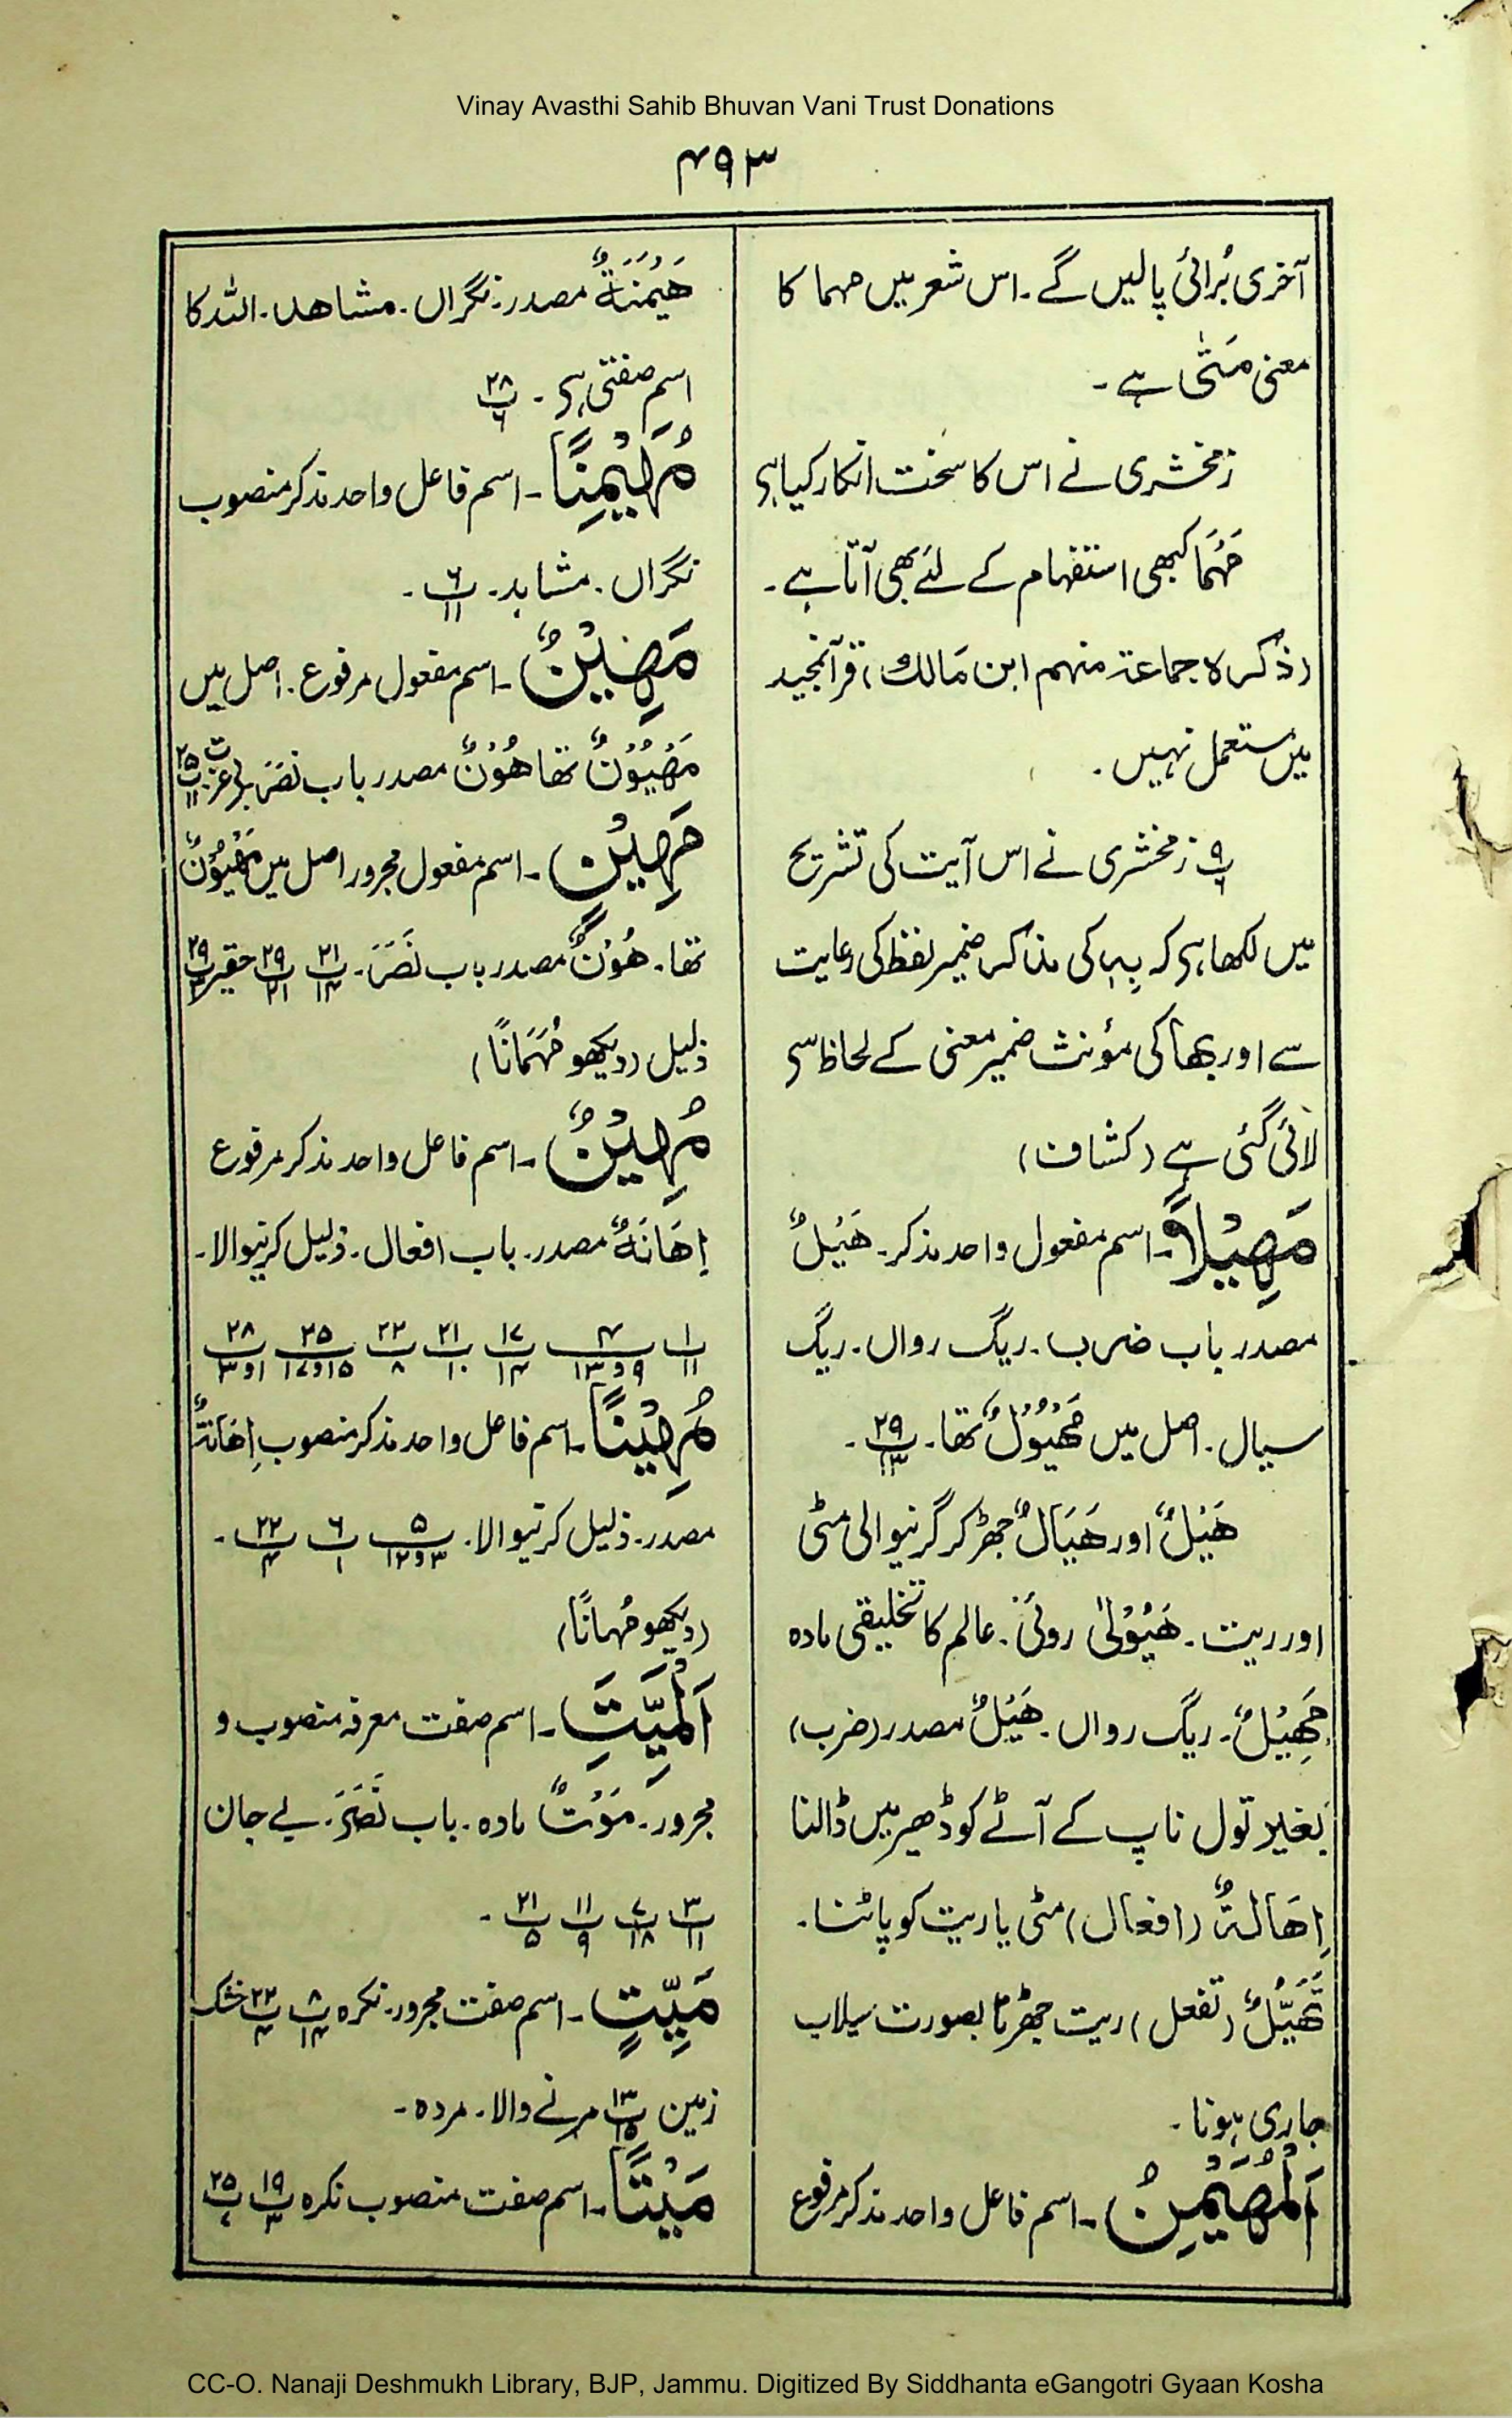 Vinay Avasthi Sahib Bhuvan Vani Trust Donations
۴۹۳
آخری بُرائی پالیں گے۔ اس شعر میں مہما کا
معنی مَتٰی ہے۔
زمخشری نے اس کا سخت انکار کیا ہے
مَہْمَا کبھی استفہام کے لئے بھی آتا ہے۔
(ذکرہ جماعۃ منہم ابن مالک) قرآنمجید
میں مستعمل نہیں۔
پ۹/۶ زمخشری نے اس آیت کی تشریح
میں لکھا ہے کہ بِہٖ کی مذکر ضمیر لفظ کی رعایت
سے اور بِھَا کی مؤنث ضمیر معنی کے لحاظ سے
لائی گئی ہے (کشاف)
مَهِيْلًا۔ اسم مفعول واحد مذکر۔ هَيْلٌ
مصدر باب ضرب۔ ریگ رواں۔ ریگ
سیال۔ اصل میں مَهْيُوْلٌ تھا۔ پ۲۹/۱۳۔
هَيْلٌ اور هَيَالٌ جھڑ کر گرنیوالی مٹی
اور ریت۔ هَيُوْلٰى روئی۔ عالم کا تخلیقی مادہ
مَهِيْلٌ۔ ریگ رواں۔ هَيْلٌ مصدر (ضرب)
بغیر تول ناپ کے آٹے کو ڈھیر میں ڈالنا
اِهَالَةٌ (افعال) مٹی یا ریت کو پاٹنا۔
تَهَيُّلٌ (تفعل) ریت جھڑنا بصورت سیلاب
جاری ہونا۔
اَلْمُهَيْمِنُ۔ اسم فاعل واحد مذکر مرفوع
هَيْمَنَةٌ مصدر۔ نگراں۔ مشاهد۔ اللہ کا
اسم صفتی ہے۔ پ۲۸/۶
مُهَيْمِنًا۔ اسم فاعل واحد مذکر منصوب
نگراں۔ مشاہد۔ پ۶/۱۱۔
مَهِيْنٌ۔ اسم مفعول مرفوع۔ اصل میں
مَهْيُوْنٌ تھا هُوْنٌ مصدر باب نَصَرَ بے عزت پ۲۵/۱۱
مَهِيْنٍ۔ اسم مفعول مجرور اصل میں مَهْيُوْنٌ
تھا۔ هُوْنٌ مصدر باب نَصَرَ۔ پ۲۱/۱۴ پ۲۹/۲۱ حقیر پ۲۹/۳
ذلیل (دیکھو مُهَانًا)
مُهِيْنٌ۔ اسم فاعل واحد مذکر مرفوع
اِهَانَةٌ مصدر۔ باب افعال۔ ذلیل کرنیوالا۔
پ۱/۱۱ پ۴/۹و۱۳ پ۱۷/۱۴ پ۲۱/۱۰ پ۲۲/۸ پ۲۵/۱۵و۱۷ پ۲۸/۱و۳
مُهِيْنًا۔ اسم فاعل واحد مذکر منصوب اِهَانَةٌ
مصدر۔ ذلیل کرنیوالا۔ پ۵/۳و۱۲ پ۶/۱ پ۲۲/۴۔
(دیکھو مُهانًا)
اَلْمَيِّتَِ۔ اسم صفت معرفہ منصوب و
مجرور۔ مَوْتٌ مادہ۔ باب نَصَرَ۔ بے جان
پ۳/۱۱ پ۷/۱۸ پ۱۱/۹ پ۲۱/۵۔
مَيِّتٍ۔ اسم صفت مجرور۔ نکرہ پ۸/۱۴ پ۲۲/۴ خشک
زمین پ۱۳/۱۵ مرنے والا۔ مردہ۔
مَيْتًا۔ اسم صفت منصوب نکرہ پ۱۹/۳ پ۲۵
CC-O. Nanaji Deshmukh Library, BJP, Jammu. Digitized By Siddhanta eGangotri Gyaan Kosha